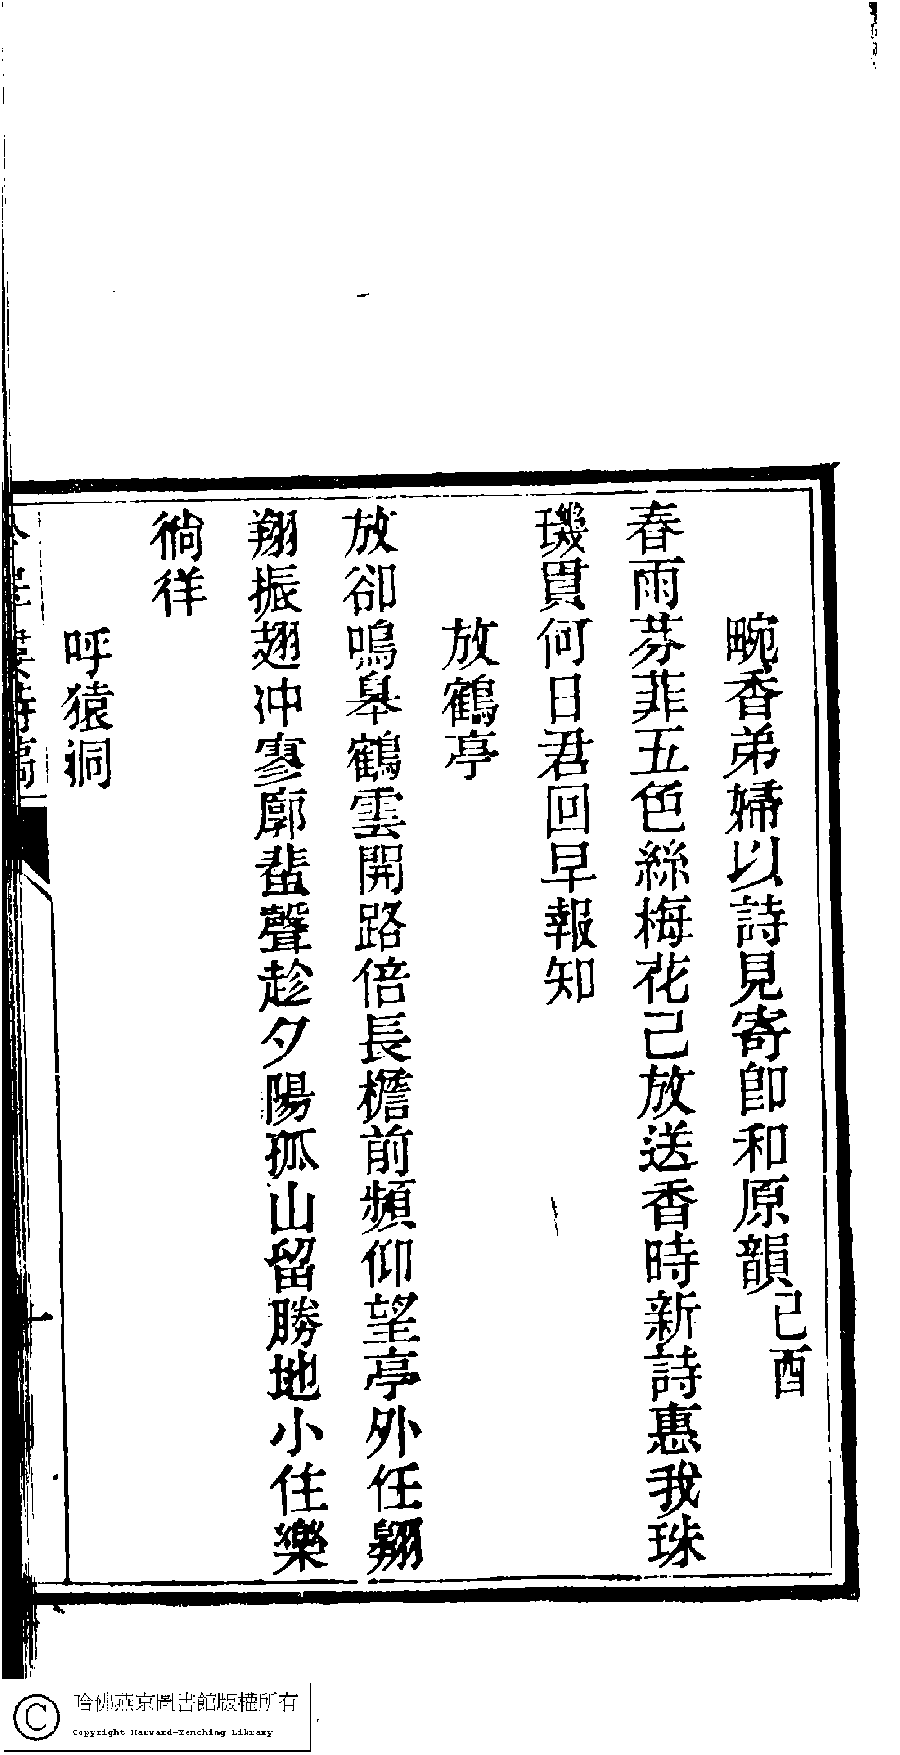 畹香弟婦以詩見寄卽和原韻己酉
春雨芬菲五色絲梅花己放送香時新詩惠我珠
璣貫何日君回早報知
放鶴亭
放卻鳴皋鶴雲開路倍長檐前頻仰望亭外任翱
翔振翅冲寥廓蜚聲趁夕陽孤山留勝地小住樂
徜徉
呼猿洞
哈佛燕京圖書館版權所有
Copyright Harvard-Yenching Library